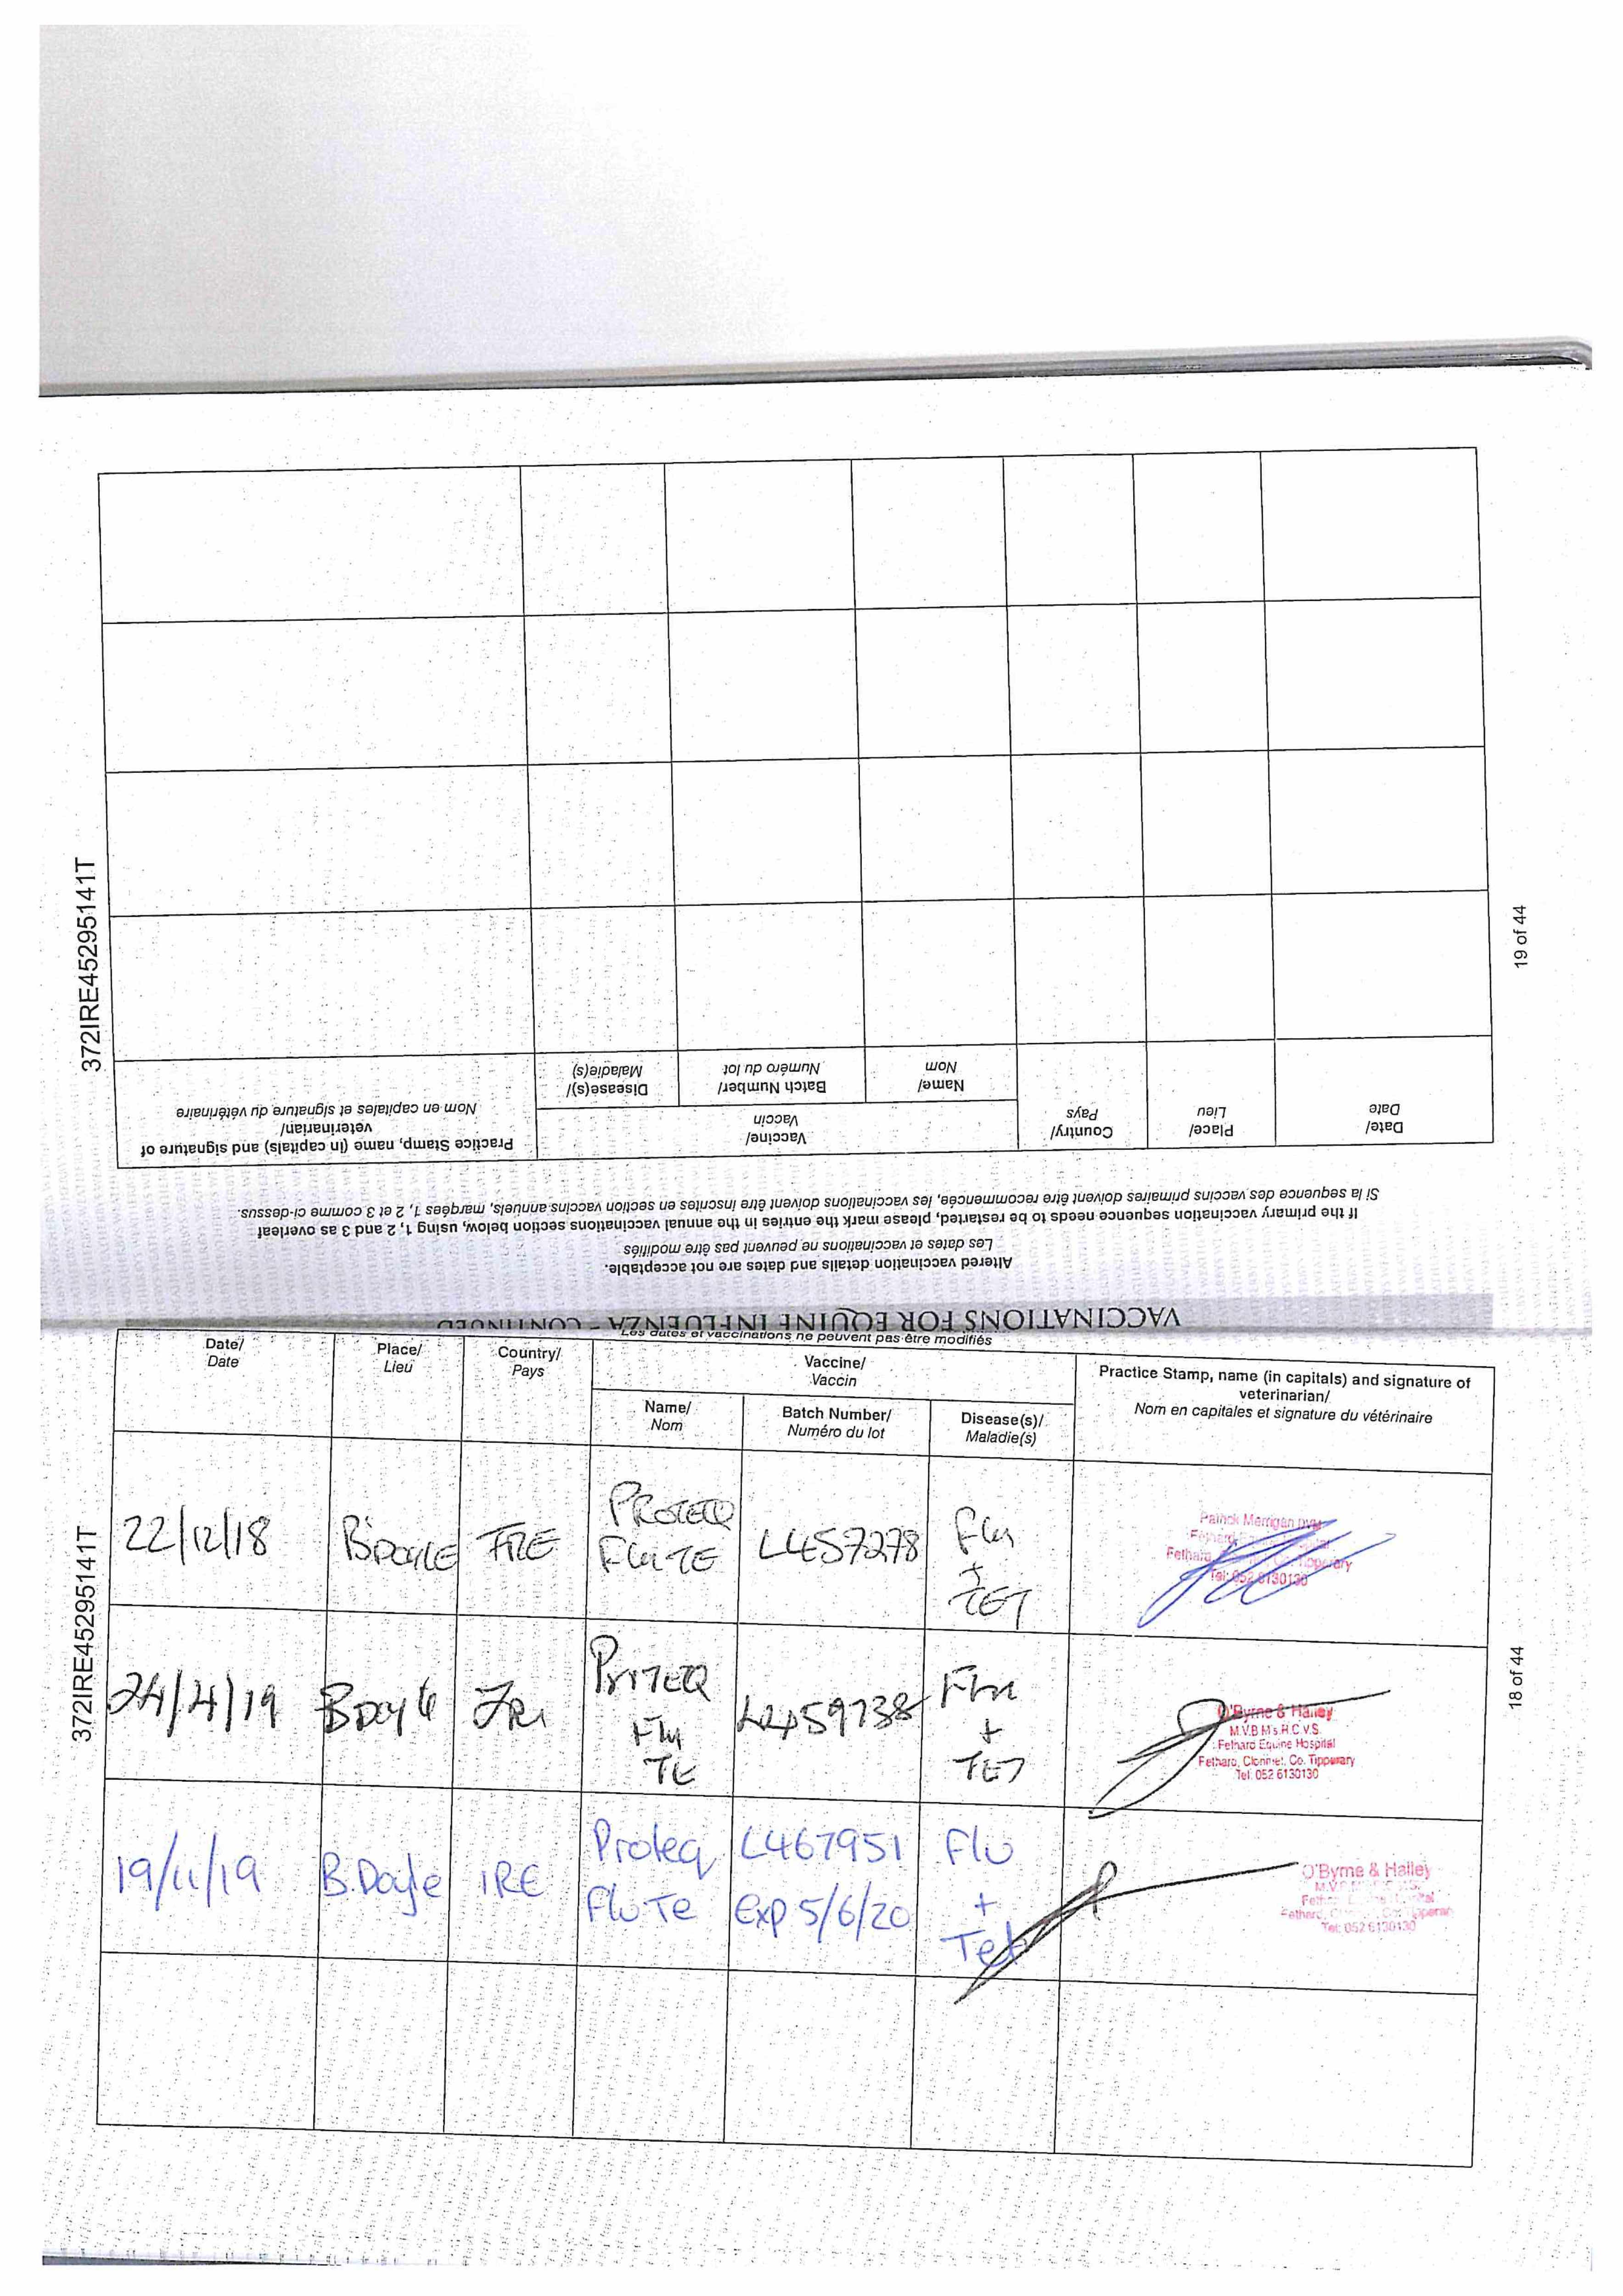 372IRE45295141T
19 of 44
VACCINATIONS FOR EQUINE INFLUENZA - CONTINUED
Altered vaccination details and dates are not acceptable.
Les dates et vaccinations ne peuvent pas être modifiés
If the primary vaccination sequence needs to be restarted, please mark the entries in the annual vaccinations section below, using 1, 2 and 3 as overleaf
Si la sequence des vaccins primaires doivent être recommencée, les vaccinations doivent être inscrites en section vaccins annuels, marqées 1, 2 et 3 comme ci-dessus.
Date/
Date
Place/
Lieu
Country/
Pays
Vaccine/
Vaccin
Name/
Nom
Batch Number/
Numéro du lot
Disease(s)/
Maladie(s)
Practice Stamp, name (in capitals) and signature of
veterinarian/
Nom en capitales et signature du vétérinaire
372IRE45295141T
18 of 44
Les dates et vaccinations ne peuvent pas être modifiés
Date/
Date
Place/
Lieu
Country/
Pays
Vaccine/
Vaccin
Name/
Nom
Batch Number/
Numéro du lot
Disease(s)/
Maladie(s)
Practice Stamp, name (in capitals) and signature of
veterinarian/
Nom en capitales et signature du vétérinaire
22/12/18
B DOYLE
IRE
PROTEQ
Flu TE
L457278
Flu
+
TET
Patrick Merrigan
Tel: 052 6130130
24/4/19
B Doyle
IRE
PROTEQ
Flu
TE
L459738
Flu
+
TET
O'Byrne & Halley
M.V.B M's.R.C.V.S.
Fethard Equine Hospital
Fethard, Clonmel, Co. Tipperary
Tel: 052 6130130
19/11/19
B.Doyle
IRE
Proteq
Flu Te
L467951
Exp 5/6/20
Flu
+
Tet
O'Byrne & Halley
Tel: 052 6130130